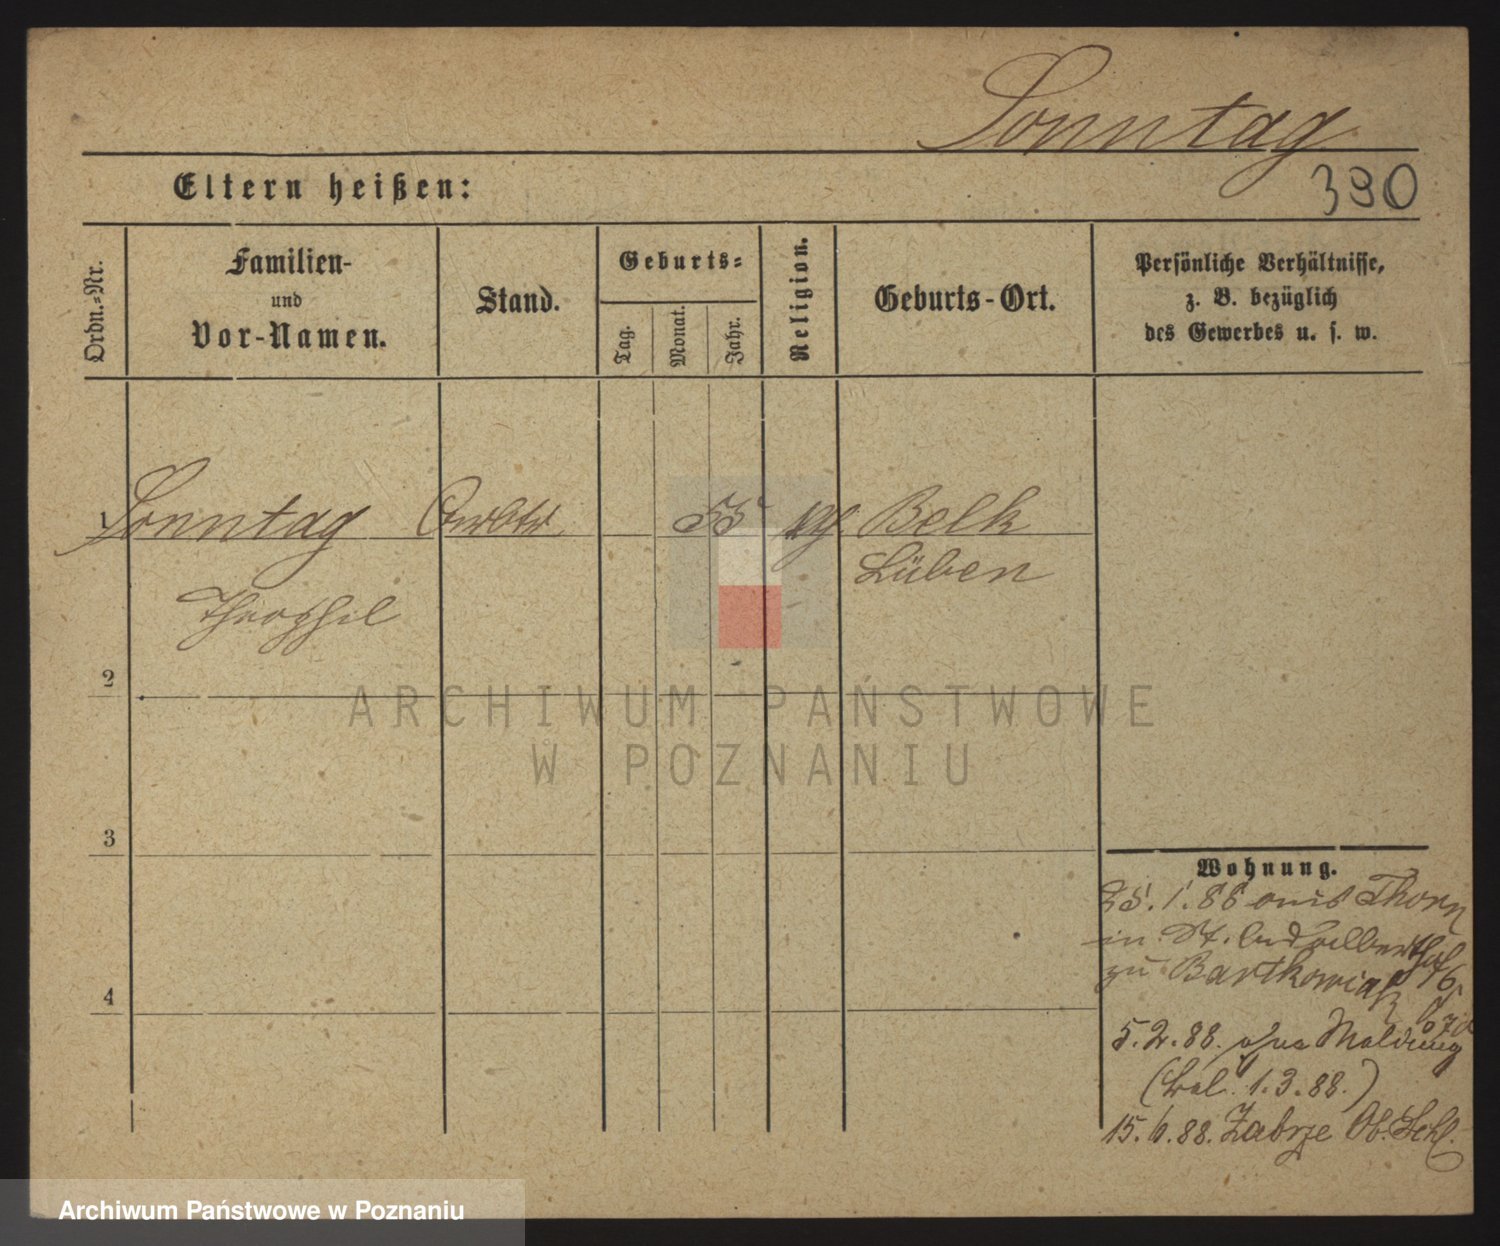 Sonntag
Eltern heißen:
390
Ordn.-Nr.
Familien-
und
Vor-Namen.
Stand.
Geburts-
Tag.
Monat.
Jahr.
Religion.
Geburts-Ort.
Persönliche Verhältnisse,
z. B. bezüglich
des Gewerbes u. s. w.
1
Sonntag
55
Belk
Lüben
Theophil
2
3
4
Wohnung.
25.1.88 aus Thorn
in St.
zu Bartkowiak
5.2.88. ohne Meldung
1.3.88.)
15.6.88. Zabrze Ob. Schl.
ARCHIWUM PAŃSTWOWE
W POZNANIU
Archiwum Państwowe w Poznaniu